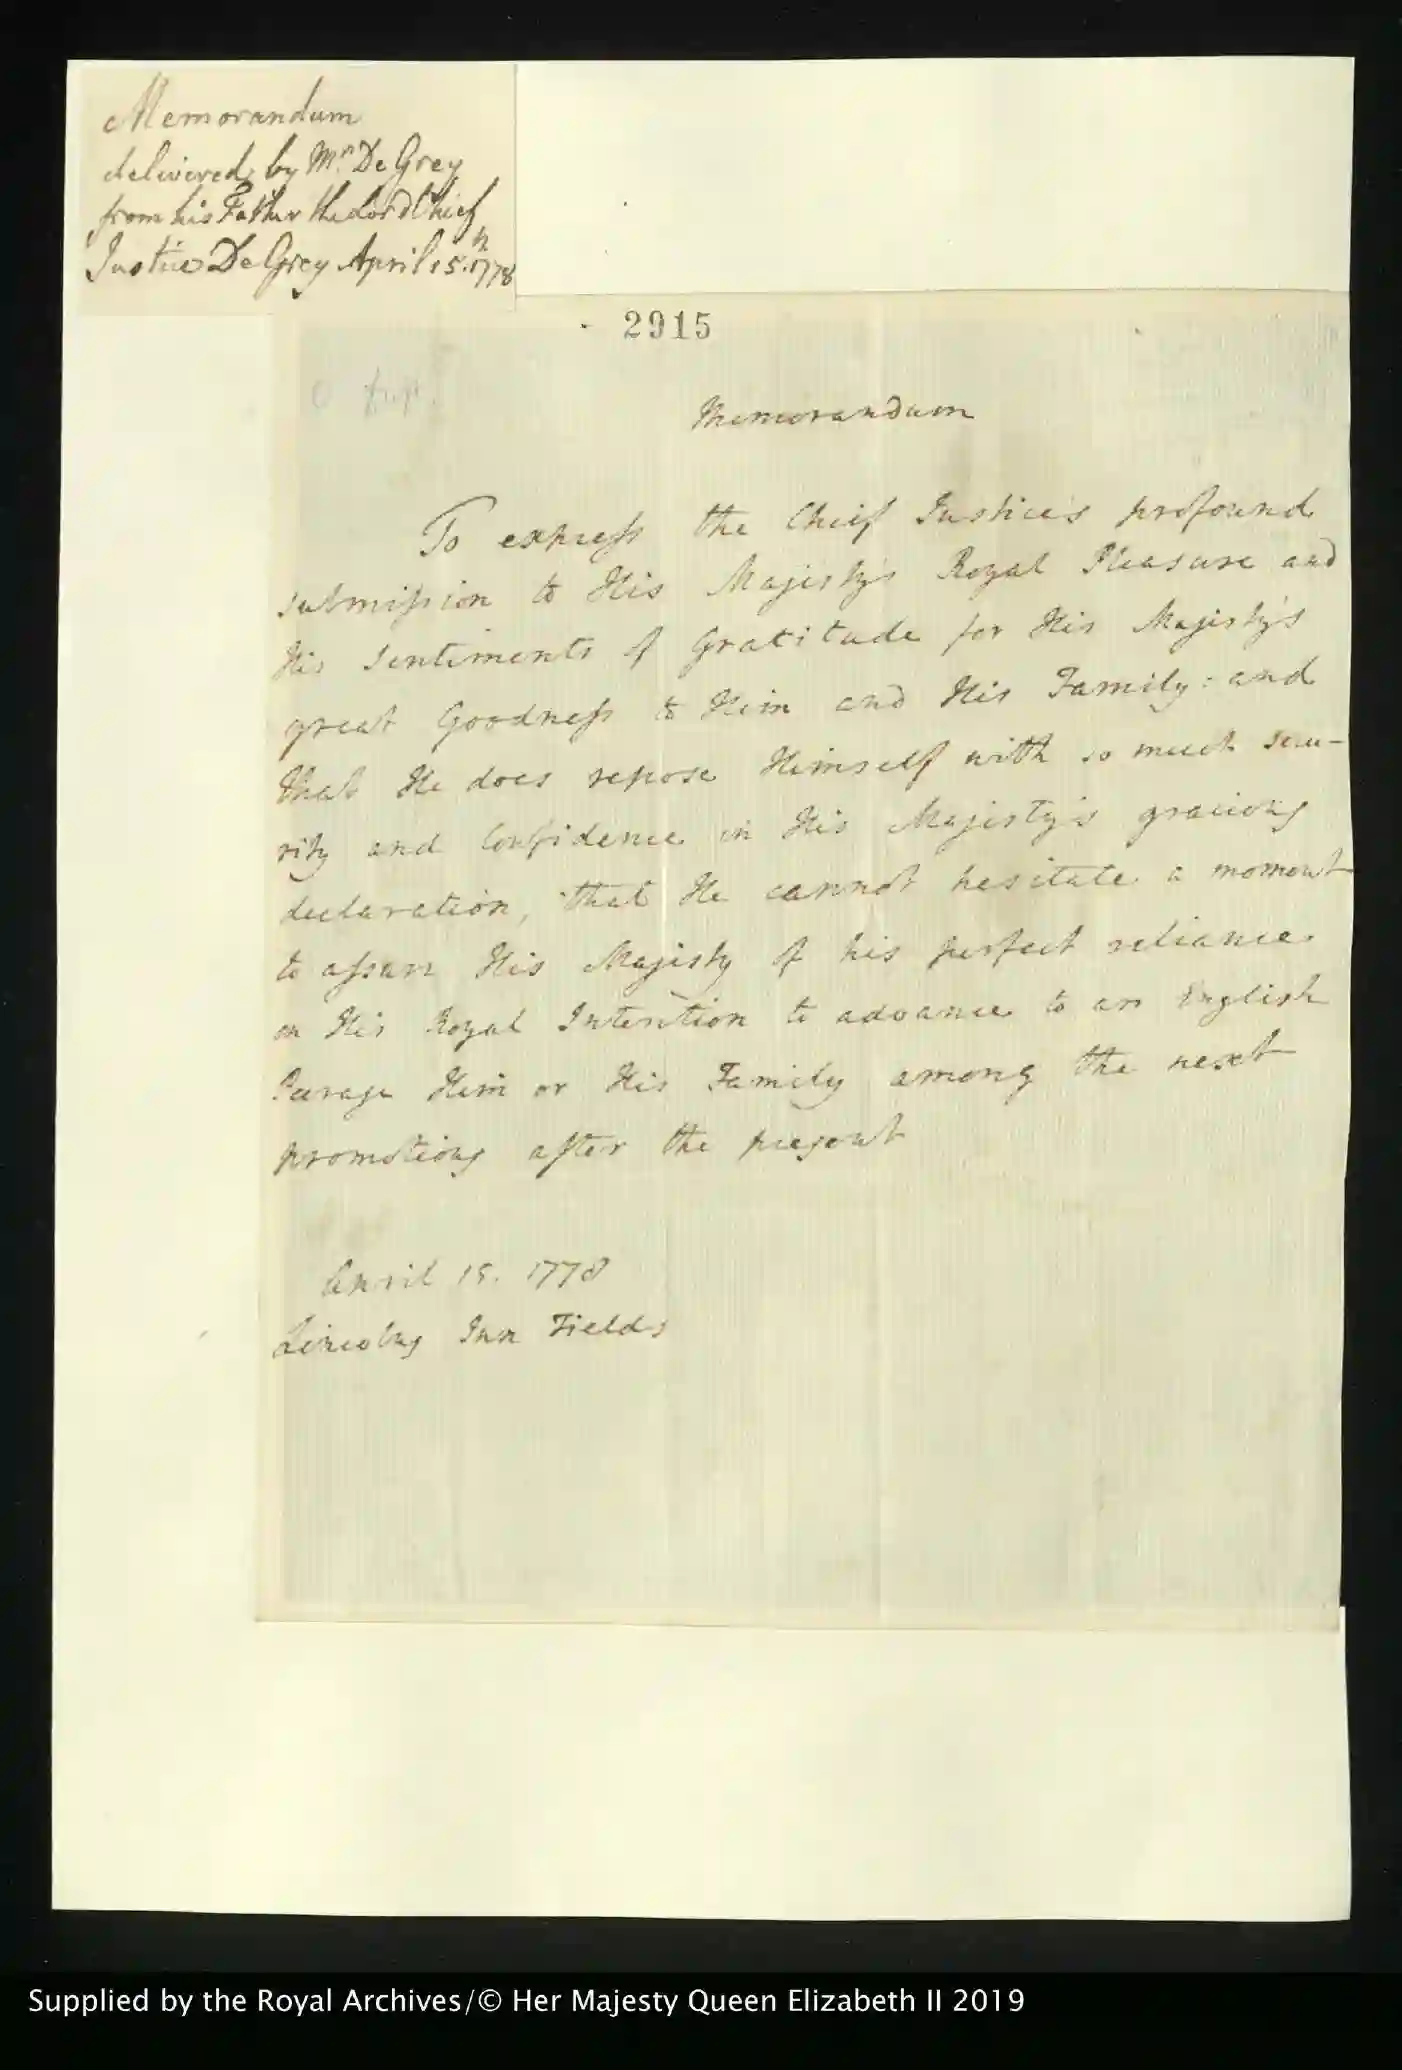 Memorandum
delivered by Mr. De Grey
from his Father the Lord Chief
Justice De Grey April 15th. 1778
2915
Memorandum
To express the Chief Justice's profound
submission to His Majesty's Royal Pleasure and
His sentiments of Gratitude for His Majesty's
great Goodness to Him and His Family: and
that He does repose Himself with so much secu-
rity and Confidence in His Majesty's gracious
declaration, that He cannot hesitate a moment
to assure His Majesty of his perfect reliance
on His Royal Intention to advance to an English
Peerage Him or His Family among the next
promotions after the present
April 15. 1778
Lincolns Inn Fields
Supplied by the Royal Archives/© Her Majesty Queen Elizabeth II 2019